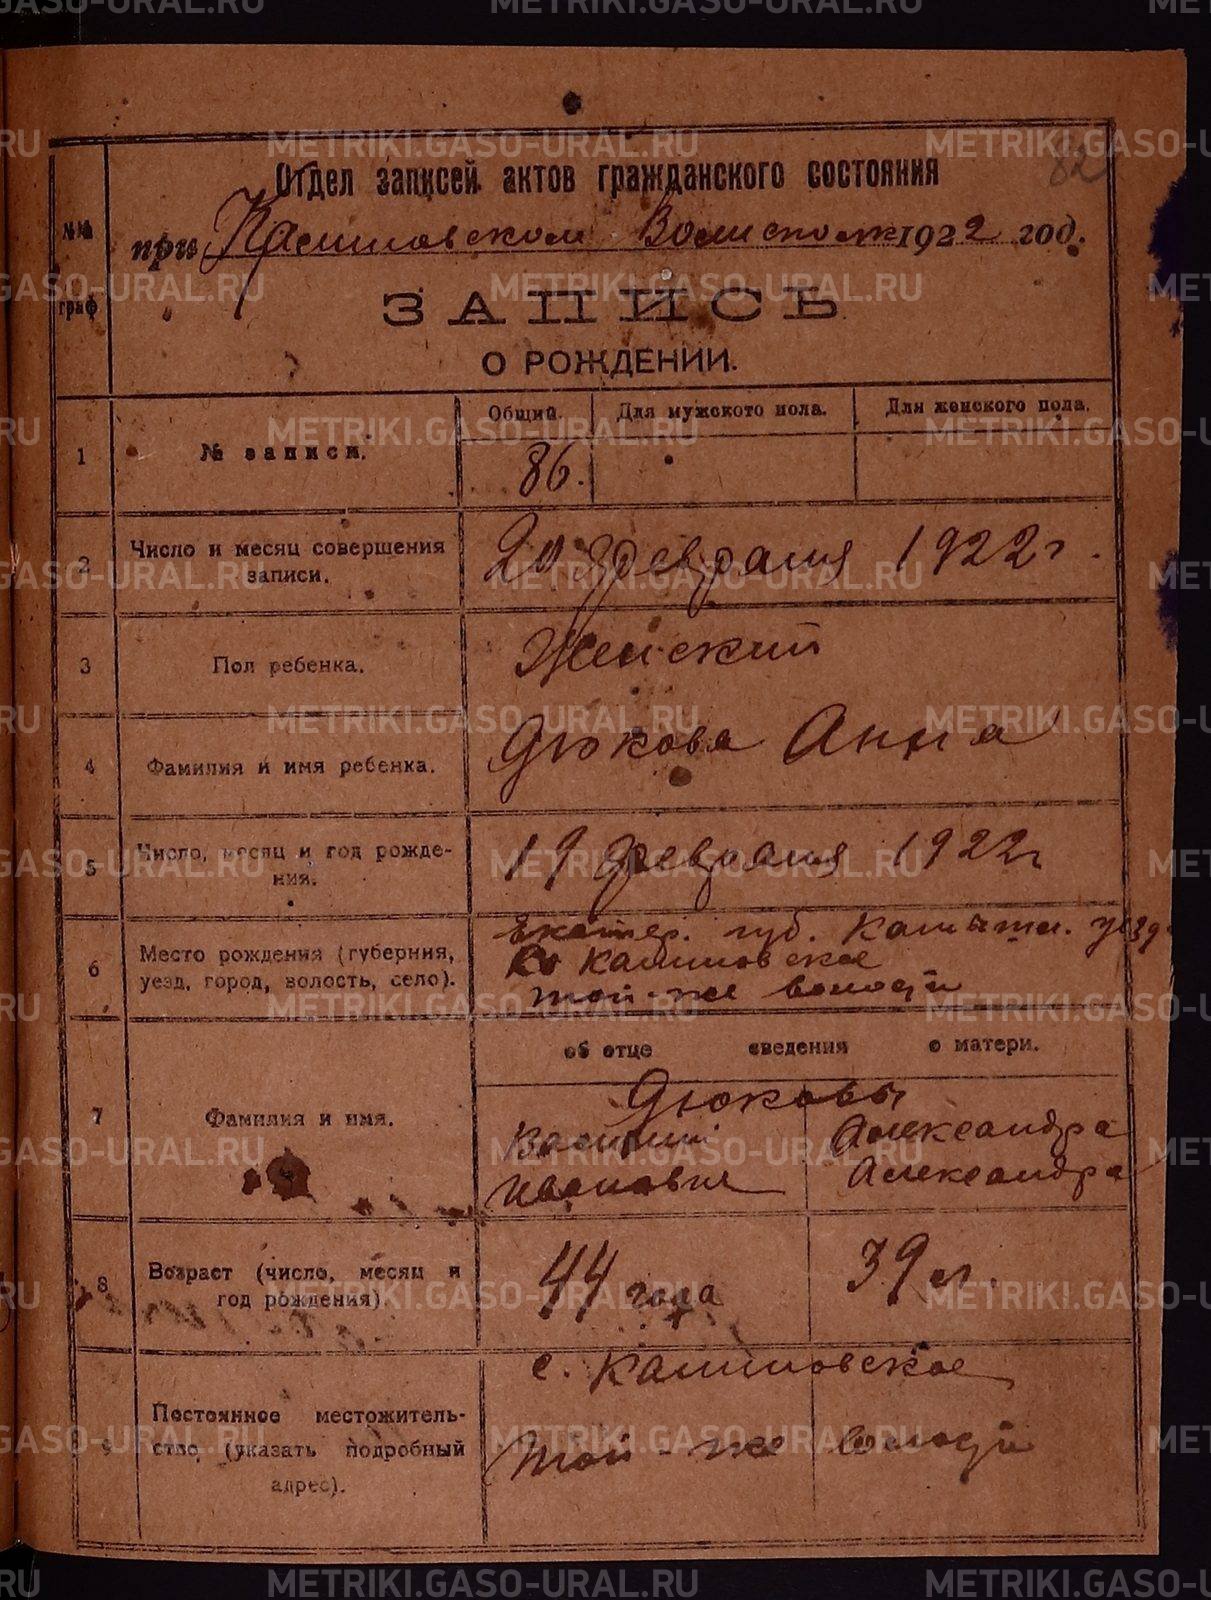 82
Отдел записей актов гражданского состояния
при Калиновском Волисполк 1922 год.
№№ граф
ЗАПИСЬ
О РОЖДЕНИИ.
Общий. Для мужского пола. Для женского пола.
1 № записи. 86.
2 Число и месяц совершения записи. 20 февраля 1922 г.
3 Пол ребенка. Женский
4 Фамилия и имя ребенка. Дюкова Анна
5 Число, месяц и год рождения. 19 февраля 1922 г
6 Место рождения (губерния, уезд, город, волость, село). Екатер. губ. уезд
Калиновское
той-же волости
об отце сведения о матери.
7 Фамилия и имя. Дюковы
Василий Александра
Иванович Александра
8 Возраст (число, месяц и год рождения). 44 года 39 л.
9 Постоянное местожительство (указать подробный адрес). с. Калиновское
той-же волости
METRIKI.GASO-URAL.RU